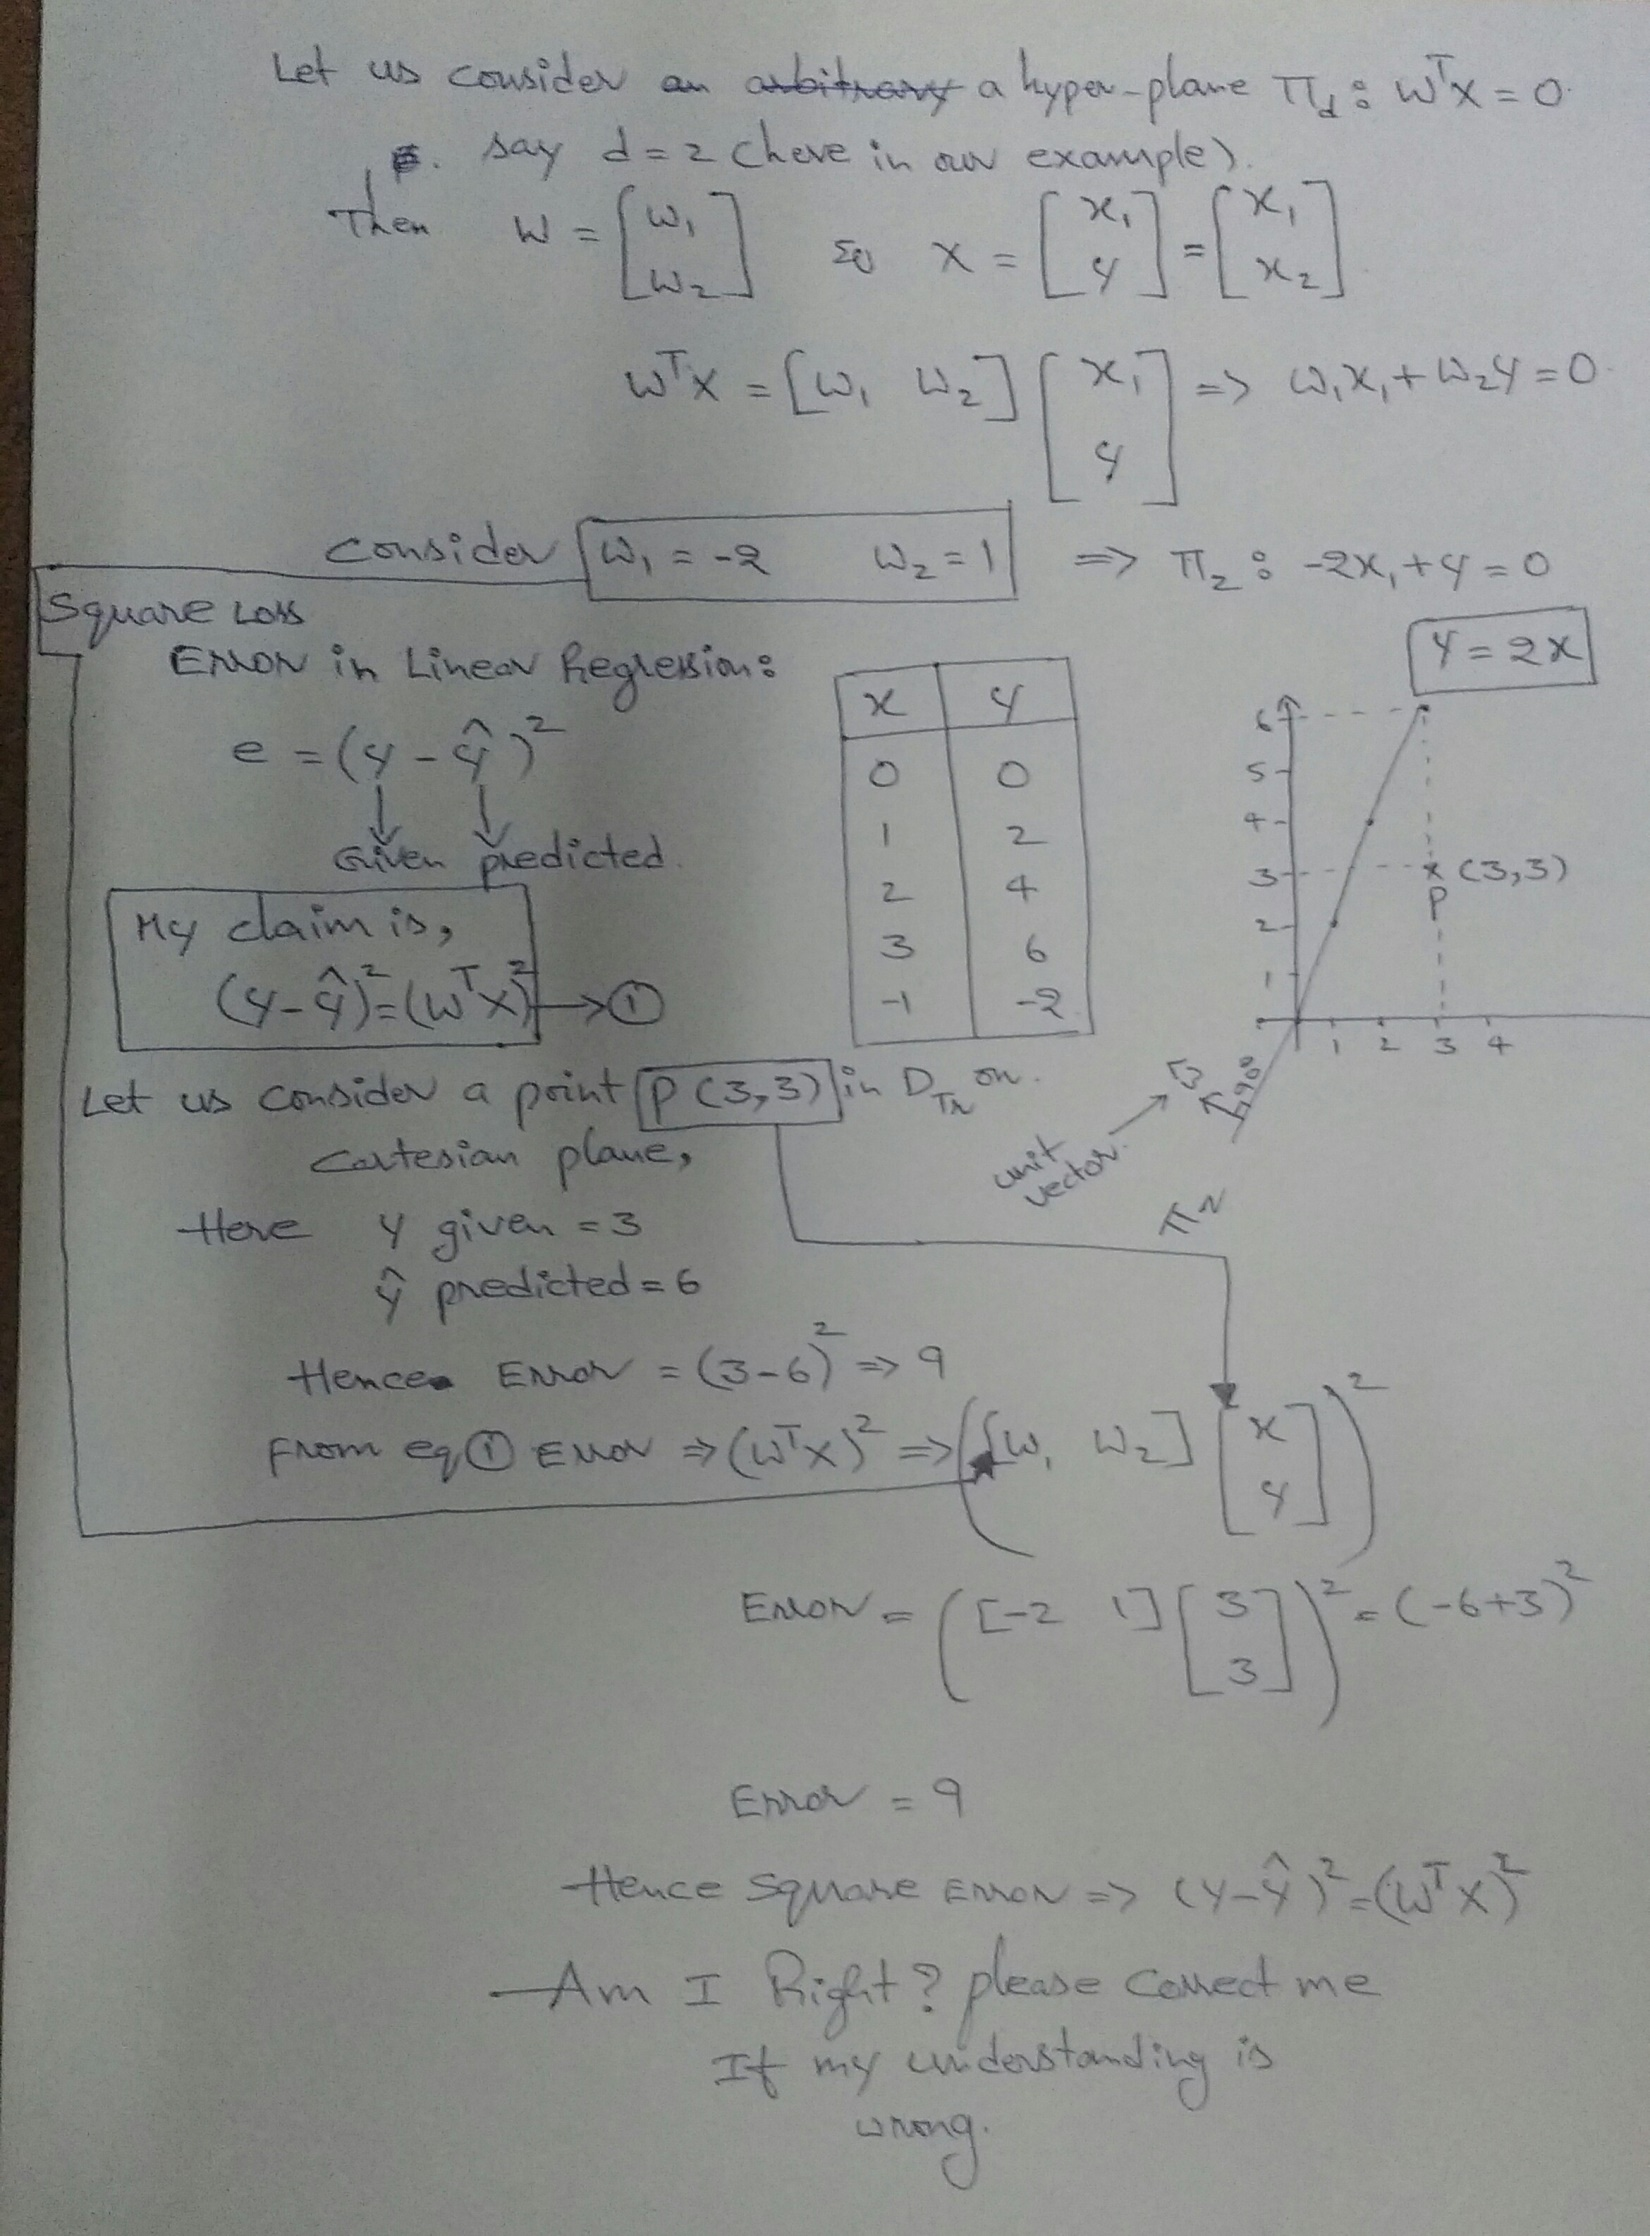 Let us consider an arbitrary a hyper-plane π_d : W^T X = 0
say d = 2 (here in our example).
Then W = [w₁ w₂] so X = [x₁ y] = [x₁ x₂]
W^T X = [w₁ w₂] [x₁ y] => w₁x₁ + w₂y = 0
Consider w₁ = -2 w₂ = 1 => π₂ : -2x₁ + y = 0
Square Loss
Error in Linear Regression:
e = (y - ŷ)²
Given predicted
My claim is,
(y - ŷ)² = (W^T X)² → ①
x y
0 0
1 2
2 4
3 6
-1 -2
y = 2x
6
5
4
3
2
1
1 2 3 4
x (3,3)
P
90°
unit vector
π₂
Let us consider a point P (3,3) in D_Tr on
Cartesian plane,
Here y given = 3
ŷ predicted = 6
Hence Error = (3-6)² => 9
From eq ① Error => (W^T X)² => ([w₁ w₂] [x y])²
Error = ([-2 1] [3 3])² = (-6+3)²
Error = 9
Hence Square Error => (y - ŷ)² = (W^T X)²
Am I Right? please correct me
If my understanding is
wrong.